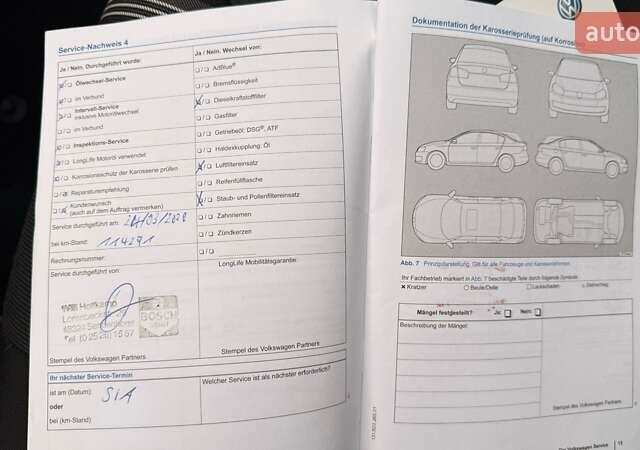 Service-Nachweis 4
Ja / Nein. Durchgeführt wurde:
Ölwechsel-Service
im Verbund
Intervall-Service
inklusive Motorölwechsel
im Verbund
Inspektions-Service
LongLife Motoröl verwendet
Korrosionsschutz der Karosserie prüfen
Reparaturempfehlung
Kundenwunsch
(auch auf dem Auftrag vermerken)
Service durchgeführt am:
bei km-Stand: 114291
Rechnungsnummer:
Service durchgeführt von:
Willi Hoffkamp
48324
BOSCH
Stempel des Volkswagen Partners
Ihr nächster Service-Termin
ist am (Datum): SIA
oder
bei (km-Stand):
Ja / Nein. Wechsel von:
AdBlue®
Bremsflüssigkeit
Dieselkraftstofffilter
Gasfilter
Getriebeöl: DSG®, ATF
Haldexkupplung: Öl
Luftfiltereinsatz
Reifenfüllflasche
Staub- und Pollenfiltereinsatz
Zahnriemen
Zündkerzen
LongLife Mobilitätsgarantie:
Stempel des Volkswagen Partners
Welcher Service ist als nächster erforderlich?
Dokumentation der Karosserieprüfung (auf Korrosion
auto
Abb. 7 Prinzipdarstellung. Gilt für alle Fahrzeuge und Karosserieformen.
Ihr Fachbetrieb markiert in Abb. 7 beschädigte Teile durch folgende Symbole:
× Kratzer
○ Beule/Delle
□ Lackschaden
Steinschlag
Mängel festgestellt?
Ja:
Nein:
Beschreibung der Mängel:
Stempel des Volkswagen Partners
Volkswagen Service